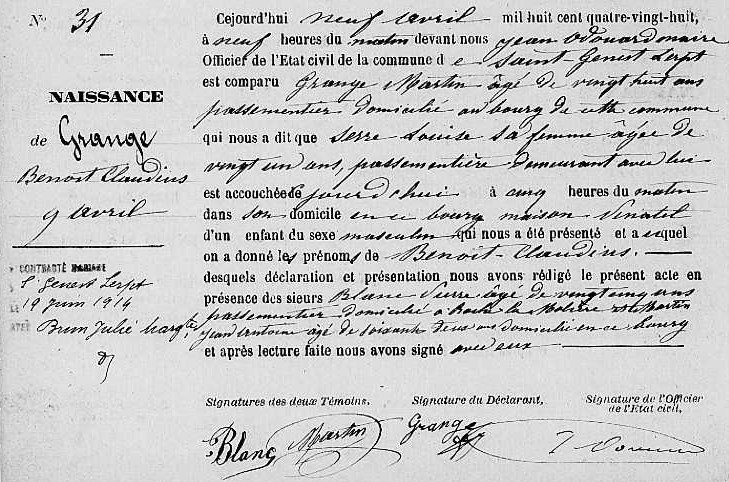 N° 31
NAISSANCE
de Grange
Benoit Claudius
9 avril
CONTRACTÉ MARIAGE
St Genest Lerpt
19 Juin 1914
Brun Julie Margte
Cejourd'hui neuf avril mil huit cent quatre-vingt-huit,
à neuf heures du matin devant nous Jean Odouard maire
Officier de l'Etat civil de la commune de Saint-Genest Lerpt
est comparu Grange Martin âgé de vingt huit ans
passementier domicilié au bourg de cette commune
qui nous a dit que Serre Louise sa femme âgée de
vingt un ans, passementière demeurant avec lui
est accouchée ce jourd'hui à cinq heures du matin
dans son domicile en ce bourg maison
d'un enfant du sexe masculin qui nous a été présenté et auquel
on a donné les prénoms de Benoit-Claudius.
desquels déclaration et présentation nous avons rédigé le présent acte en
présence des sieurs Blanc Pierre âgé de vingt cinq ans
passementier domicilié à Roche la Molière et Martin
Jean Antoine âgé de soixante deux ans domicilié en ce bourg
et après lecture faite nous avons signé avec eux
Signatures des deux Témoins,
Signature du Déclarant,
Signature de l'Officier
de l'Etat civil,
Blanc
Martin
Grange